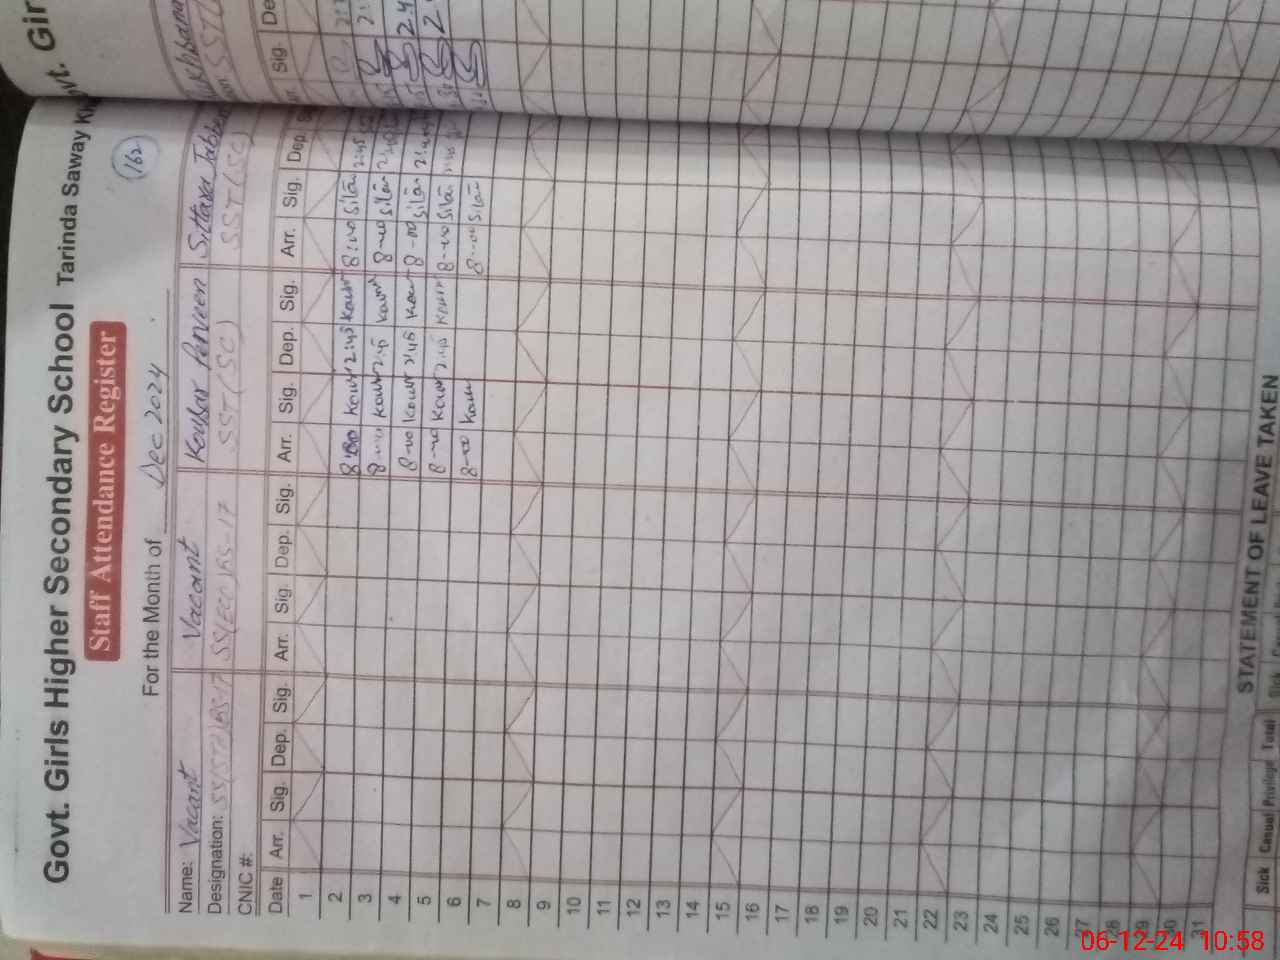 Govt. Girls Higher Secondary School Tarinda Saway
Staff Attendance Register
162
For the Month of Dec 2024
Name: Vacant Vacant Kousar Perveen Sittara Jabb
Designation: SS(ST)BS-17 SS(ECO)BS-17 SST(SC) SST(SC)
CNIC #:
Date Arr. Sig. Dep. Sig. Arr. Sig. Dep. Sig. Arr. Sig. Dep. Sig. Arr. Sig. Dep.
1
2 8:00 Kousr 2:45 Kousr 8:00 Sitar 2:45
3 8-00 Kousr 2:45 Kousr 8-00 Sitar 2:45
4 8-00 Kousr 2:45 Kousr 8-00 Sitar 2:45
5 8-00 Kousr 2:45 Kousr 8-00 Sitar
6 8-00 Kousr 8-00 Sitar
7
8
9
10
11
12
13
14
15
16
17
18
19
20
21
22
23
24
25
26
27
28
29
30
31
STATEMENT OF LEAVE TAKEN
Sick Casual Privilege Total
Govt. Gir
Sig. De
06-12-24 10:58